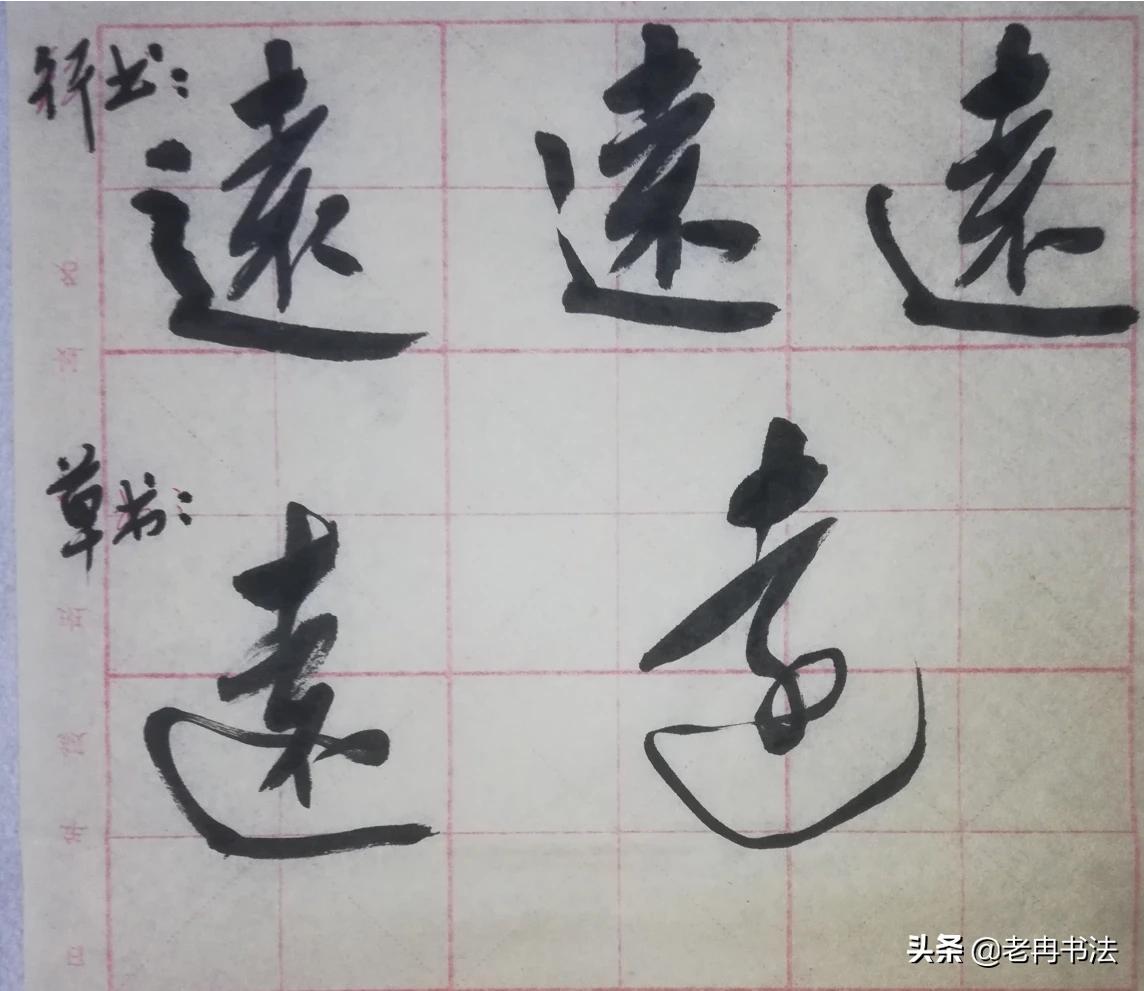 行书：遠 遠 遠
草书：遠 遠
头条 @老冉书法